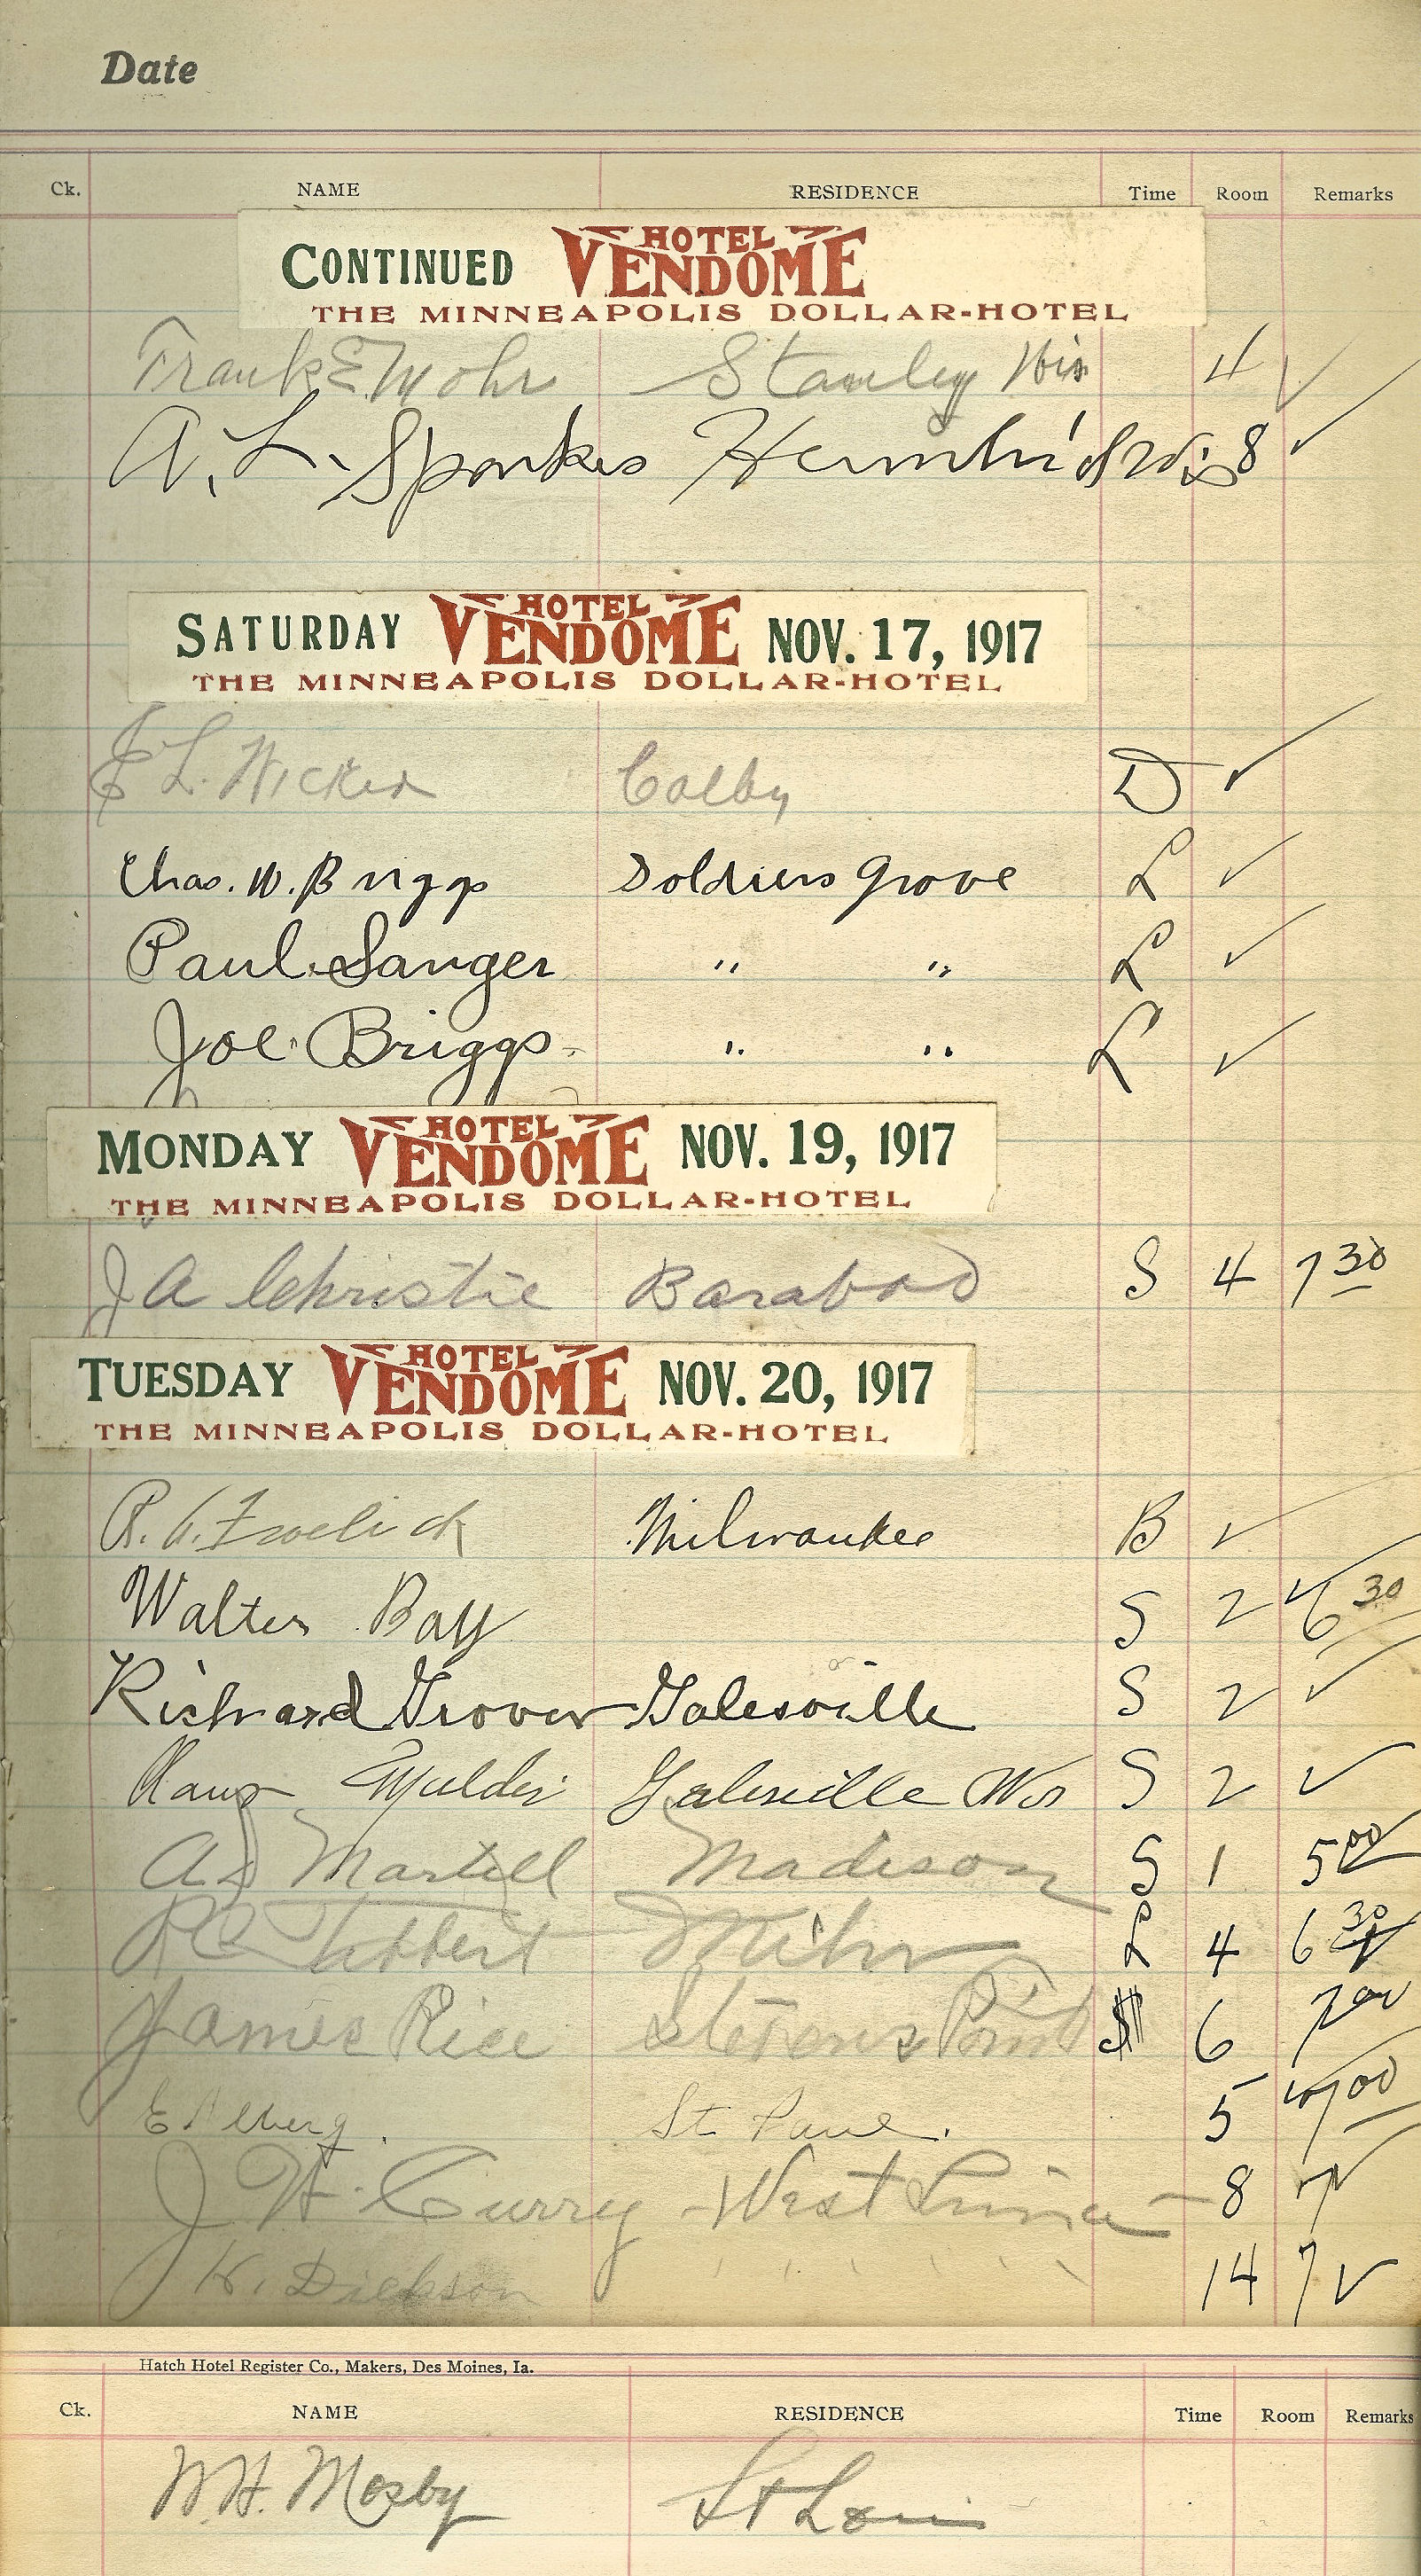 Date
Ck. NAME RESIDENCE Time Room Remarks
CONTINUED HOTEL VENDOME
THE MINNEAPOLIS DOLLAR-HOTEL
Frank E Mohr Stanley Wis 4 ✓
A. L. Sparkes 8 ✓
SATURDAY HOTEL VENDOME NOV. 17, 1917
THE MINNEAPOLIS DOLLAR-HOTEL
L. Wicker Colby D ✓
Chas. W. Briggs Soldiers Grove L ✓
Paul Sanger " " L ✓
Joe Briggs " " L ✓
MONDAY HOTEL VENDOME NOV. 19, 1917
THE MINNEAPOLIS DOLLAR-HOTEL
J A Christie Baraboo S 4 7 30
TUESDAY HOTEL VENDOME NOV. 20, 1917
THE MINNEAPOLIS DOLLAR-HOTEL
R. Froelick Milwaukee B ✓
Walter S 2 ✓ 6 30
Richard Grover Galesville S 2 ✓
Mulder Galesville Wis S 2 ✓
A J Martell Madison S 1 5 00
R C Tibbert Milw L 4 6 30
James Rice Stevens Point S 6 7 00
E Alberg. St Paul. 5 7 00
J W. Curry West Lima 8 7 ✓
J K. Dickson 14 7 ✓
Hatch Hotel Register Co., Makers, Des Moines, Ia.
Ck. NAME RESIDENCE Time Room Remarks
W. H. Mosby St Louis